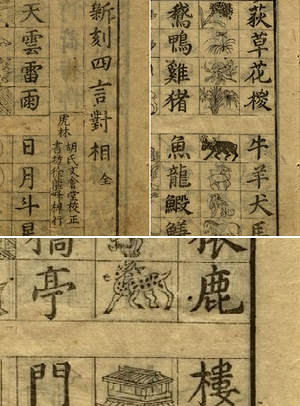 新刻四言對相 全
虎林
胡氏文會堂校正
書坊徐
梓行
天雲雷雨
日月斗
荻草花
牛羊犬
鵝鴨雞猪
魚龍蝦
鹿
樓
亭
門